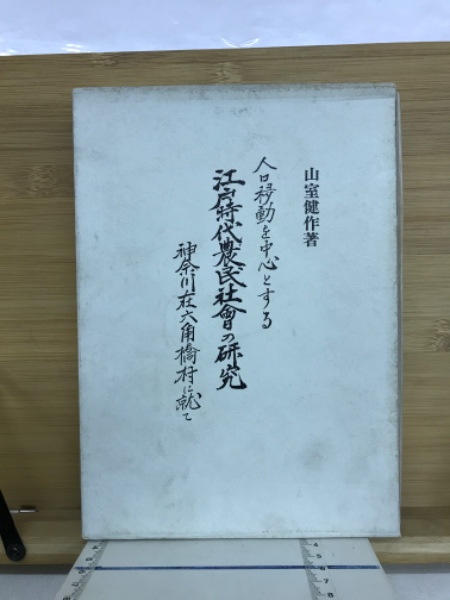 山室健作著
人口移動を中心とする
江戸時代農民社會の研究
神奈川在六角橋村に就て